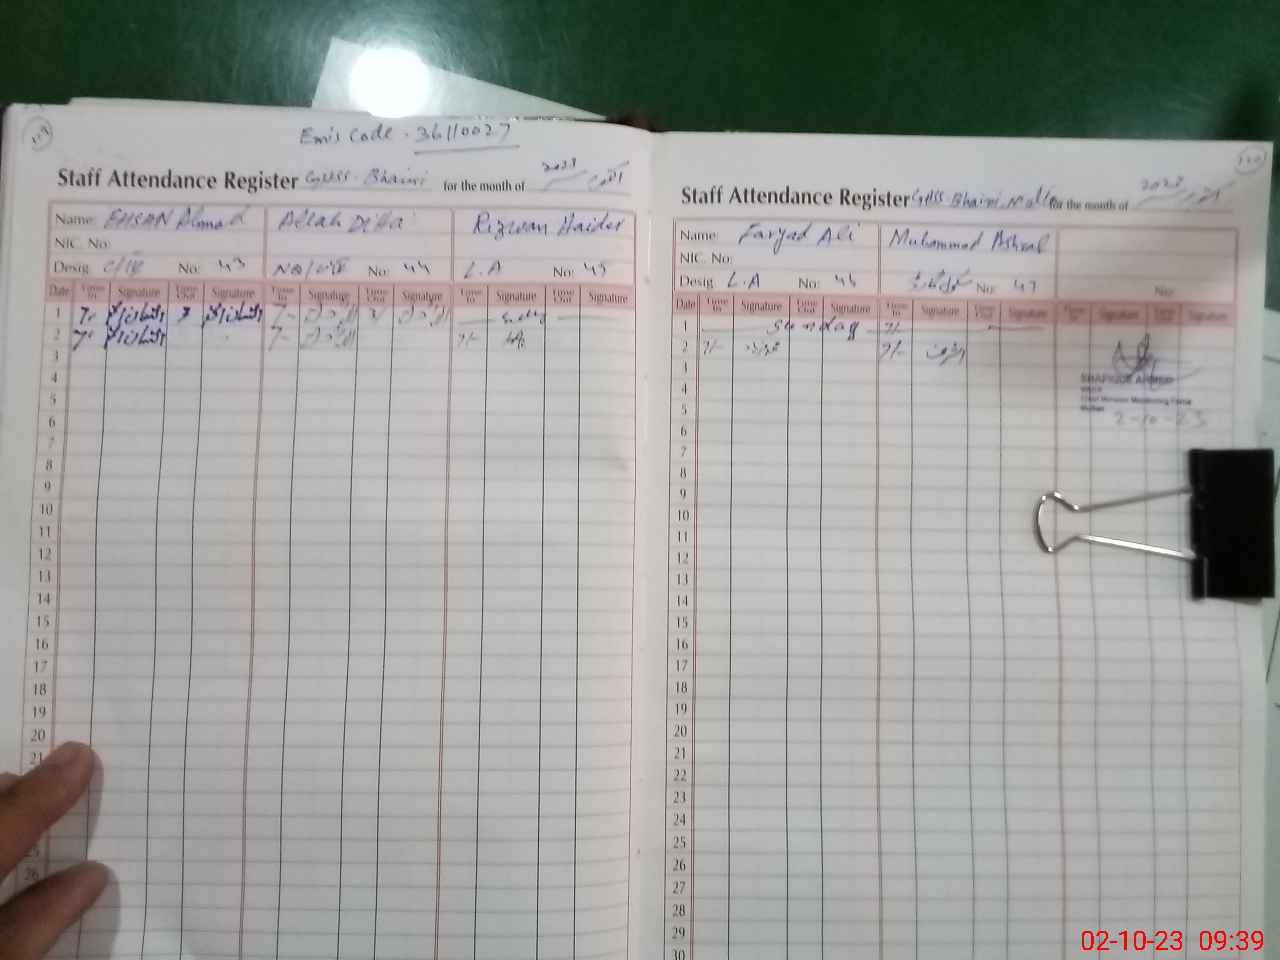 119
Emis Code . 36110027
Staff Attendance Register GHSS. Bhaini for the month of 2023 اکتوبر
Name: EHSAN Ahmad Allah Ditta Rizwan Haider
NIC. No:
Desig. C/IV No: 43 NQ/ No: 44 L.A No: 45
Date Time In Signature Time Out Signature Time In Signature Time Out Signature Time In Signature Time Out Signature
1 7- 7-
2 7- 7- 7/-
3
4
5
6
7
8
9
10
11
12
13
14
15
16
17
18
19
20
21
25
26
120
Staff Attendance Register GHSS. Bhaini for the month of 2023 اکتوبر
Name: Faryad Ali Muhammad Ashraf
NIC. No:
Desig. L.A No: 46 No: 47 No:
Date Time In Signature Time Out Signature Time In Signature Time Out Signature Time In Signature Time Out Signature
1 Sunday 7/-
2 7/- 7/- اشرف
3
4
5
6
7
8
9
10
11
12
13
14
15
16
17
18
19
20
21
22
23
24
25
26
27
28
29
30
Chief Minister Monitoring Force
2-10-23
02-10-23 09:39